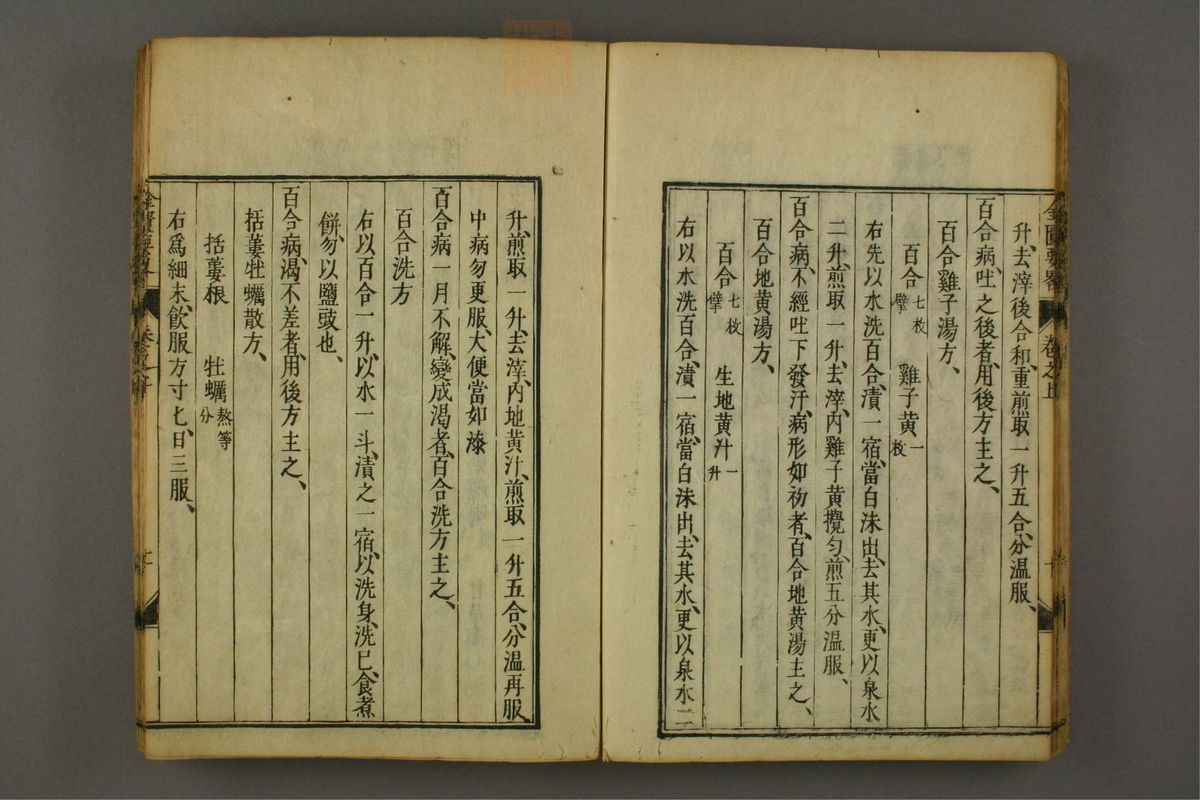 升、去滓後合和、重煎取一升五合、分温服、
百合病、吐之後者、用後方主之、
百合雞子湯方、
百合七枚擘 雞子黄一枚
右先以水洗百合、漬一宿、當白沫出、去其水、更以泉水
二升、煎取一升、去滓、内雞子黄攪匀、煎五分温服、
百合病、不經吐下發汗、病形如初者、百合地黄湯主之、
百合地黄湯方、
百合七枚擘 生地黄汁一升
右以水洗百合、漬一宿、當白沫出、去其水、更以泉水二
升、煎取一升、去滓、内地黄汁、煎取一升五合、分温再服、
中病勿更服、大便當如漆
百合病一月不解、變成渴者、百合洗方主之、
百合洗方
右以百合一升、以水一斗、漬之一宿、以洗身、洗已、食煮
餅、勿以鹽豉也、
百合病、渴不差者、用後方主之、
栝蔞牡蠣散方、
栝蔞根 牡蠣熬等分
右爲細末、飲服方寸匕、日三服、